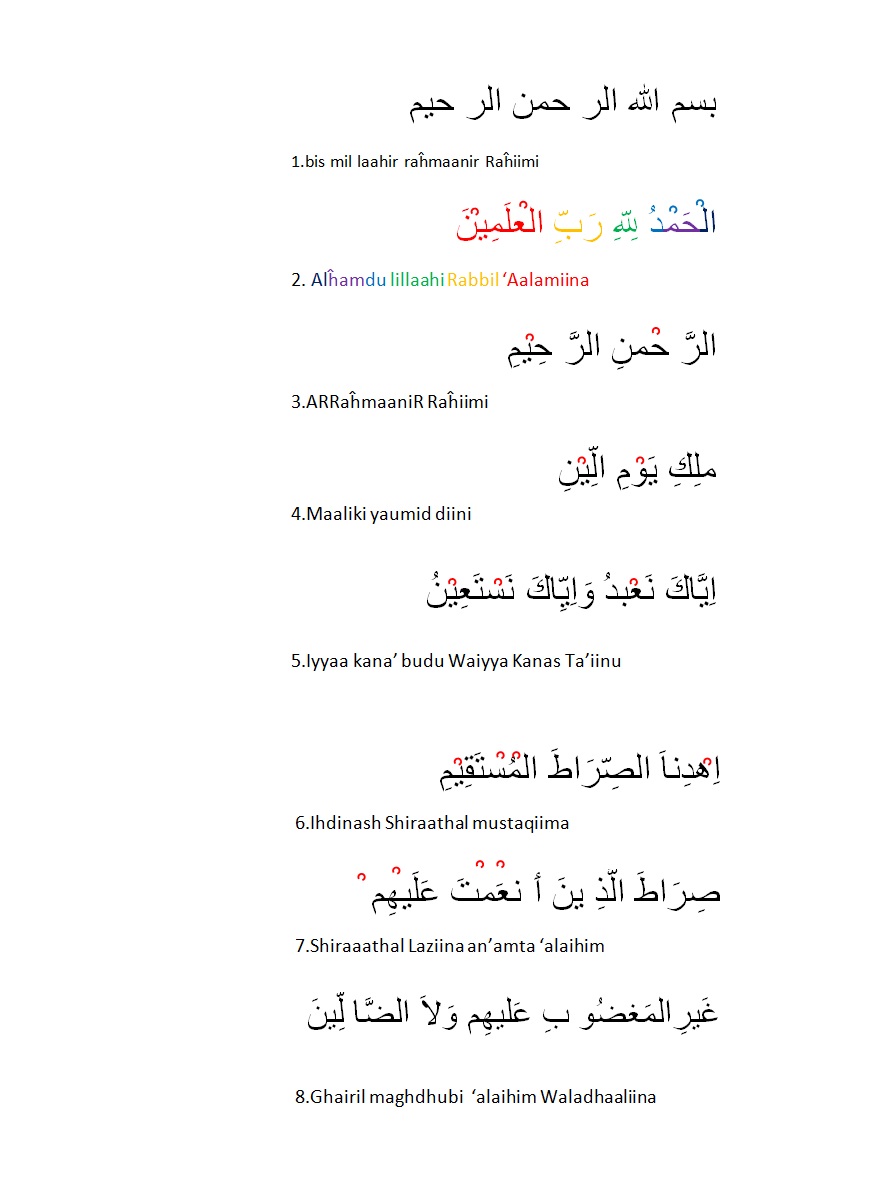 بسم الله الر حمن الر حيم
1.bis mil laahir raĥmaanir Raĥiimi
الْحَمْدُ لِلّهِ رَبِّ الْعْلَمِيْنَ
2. Alĥamdu lillaahi Rabbil ‘Aalamiina
الرَّ حْمنِ الرَّ حِيْمِ
3.ARRaĥmaaniR Raĥiimi
ملِكِ يَوْمِ الِّيْنِ
4.Maaliki yaumid diini
اِيَّاكَ نَعْبدُ وَاِيِّاكَ نَسْتَعِيْنُ
5.Iyyaa kana’ budu Waiyya Kanas Ta’iinu
اِهْدِناَ الصِّرَاطَ الْمُسْتَقِيْمِ
6.Ihdinash Shiraathal mustaqiima
صِرَاطَ الَّذِ ينَ أ نعَمْتَ عَلَيْهِم ْ
7.Shiraaathal Laziina an’amta ‘alaihim
غَيرِ المَغضُو بِ عَليهِم وَلاَ الضَّا لِّينَ
8.Ghairil maghdhubi ‘alaihim Waladhaaliina